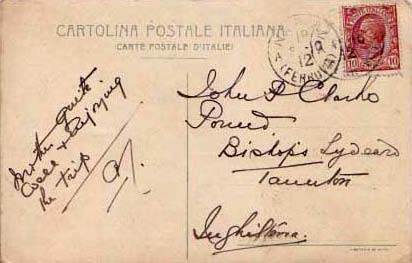 CARTOLINA POSTALE ITALIANA
(CARTE POSTALE D'ITALIE)
12
(FERROVIA)
10 10
Mother quite
well & enjoying
the trip
John P Clarke
Pound
Bishops Lydeard
Taunton
Inghilterra.